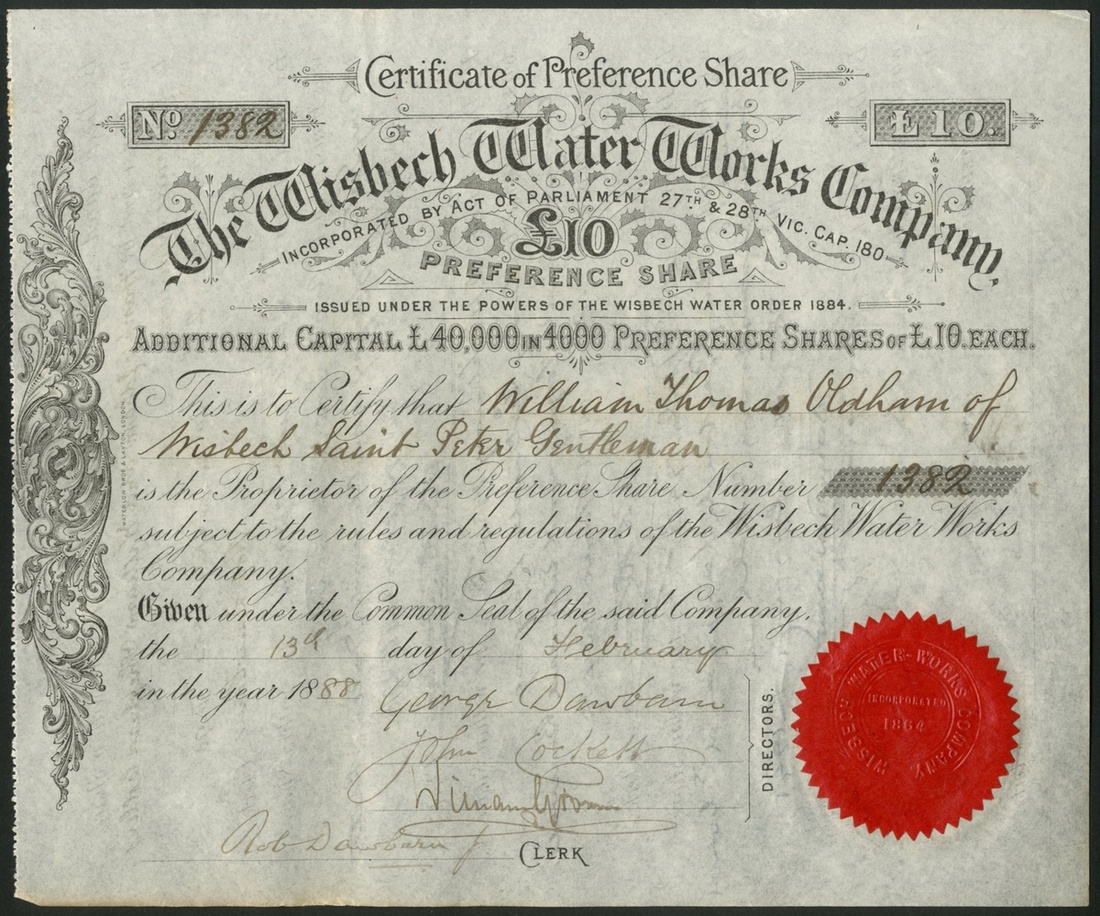 Certificate of Preference Share
No. 1382
£10.
The Wisbech Water Works Company,
INCORPORATED BY ACT OF PARLIAMENT 27TH & 28TH VIC. CAP. 180
£10
PREFERENCE SHARE
ISSUED UNDER THE POWERS OF THE WISBECH WATER ORDER 1884.
ADDITIONAL CAPITAL £40,000 IN 4000 PREFERENCE SHARES OF £10. EACH.
This is to Certify that William Thomas Oldham of
Wisbech Saint Peter Gentleman
is the Proprietor of the Preference Share Number 1382
subject to the rules and regulations of the Wisbech Water Works
Company.
Given under the Common Seal of the said Company,
the 13th day of February
in the year 1888
George Dawbarn
John Cockett
DIRECTORS.
Rob Dawbarn
CLERK
WISBECH WATER-WORKS COMPANY
INCORPORATED
1864
WATERLOW BROS & LAYTON, LONDON